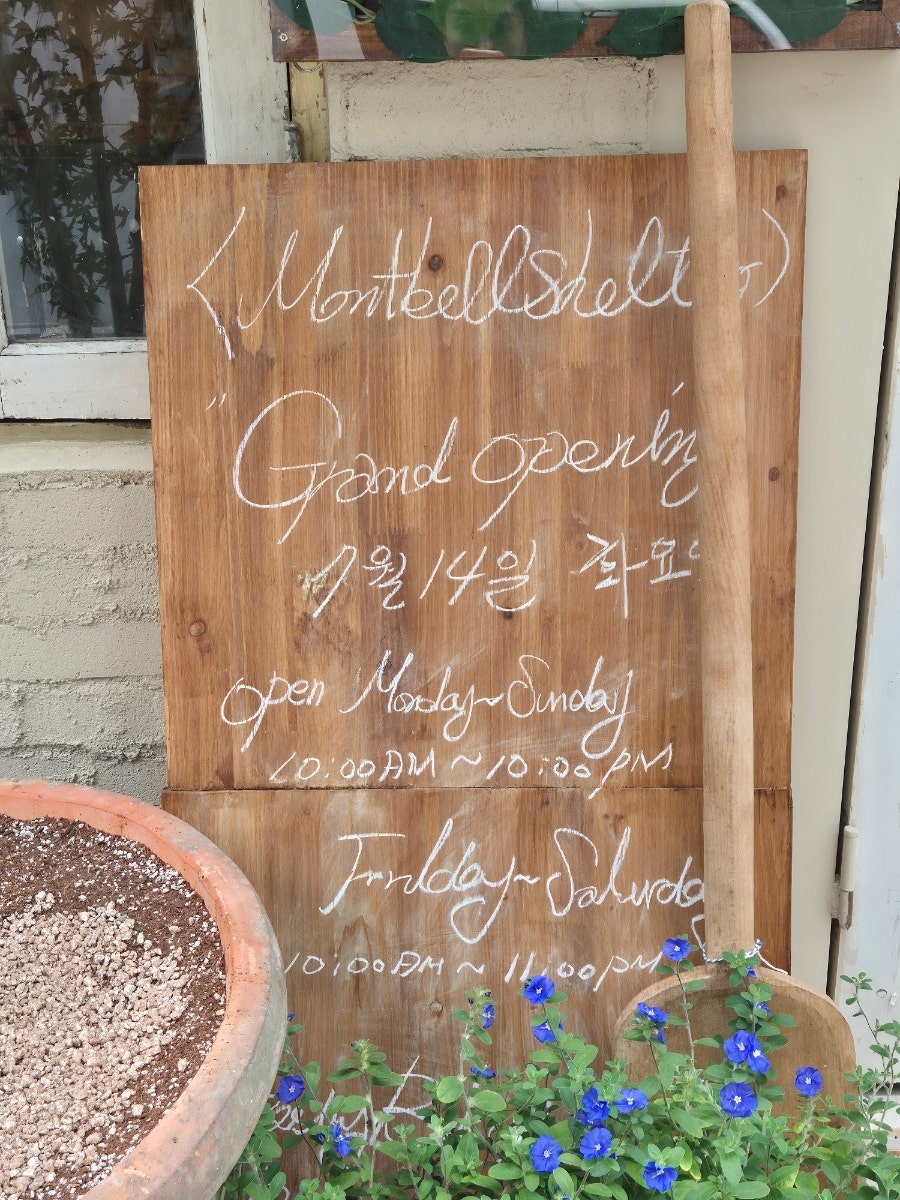 <Montbell Shelter>
"Grand opening
7월 14일 화요일
open Monday~Sunday
10:00AM ~ 10:00 PM
Friday~Saturday
10:00AM ~ 11:00 PM